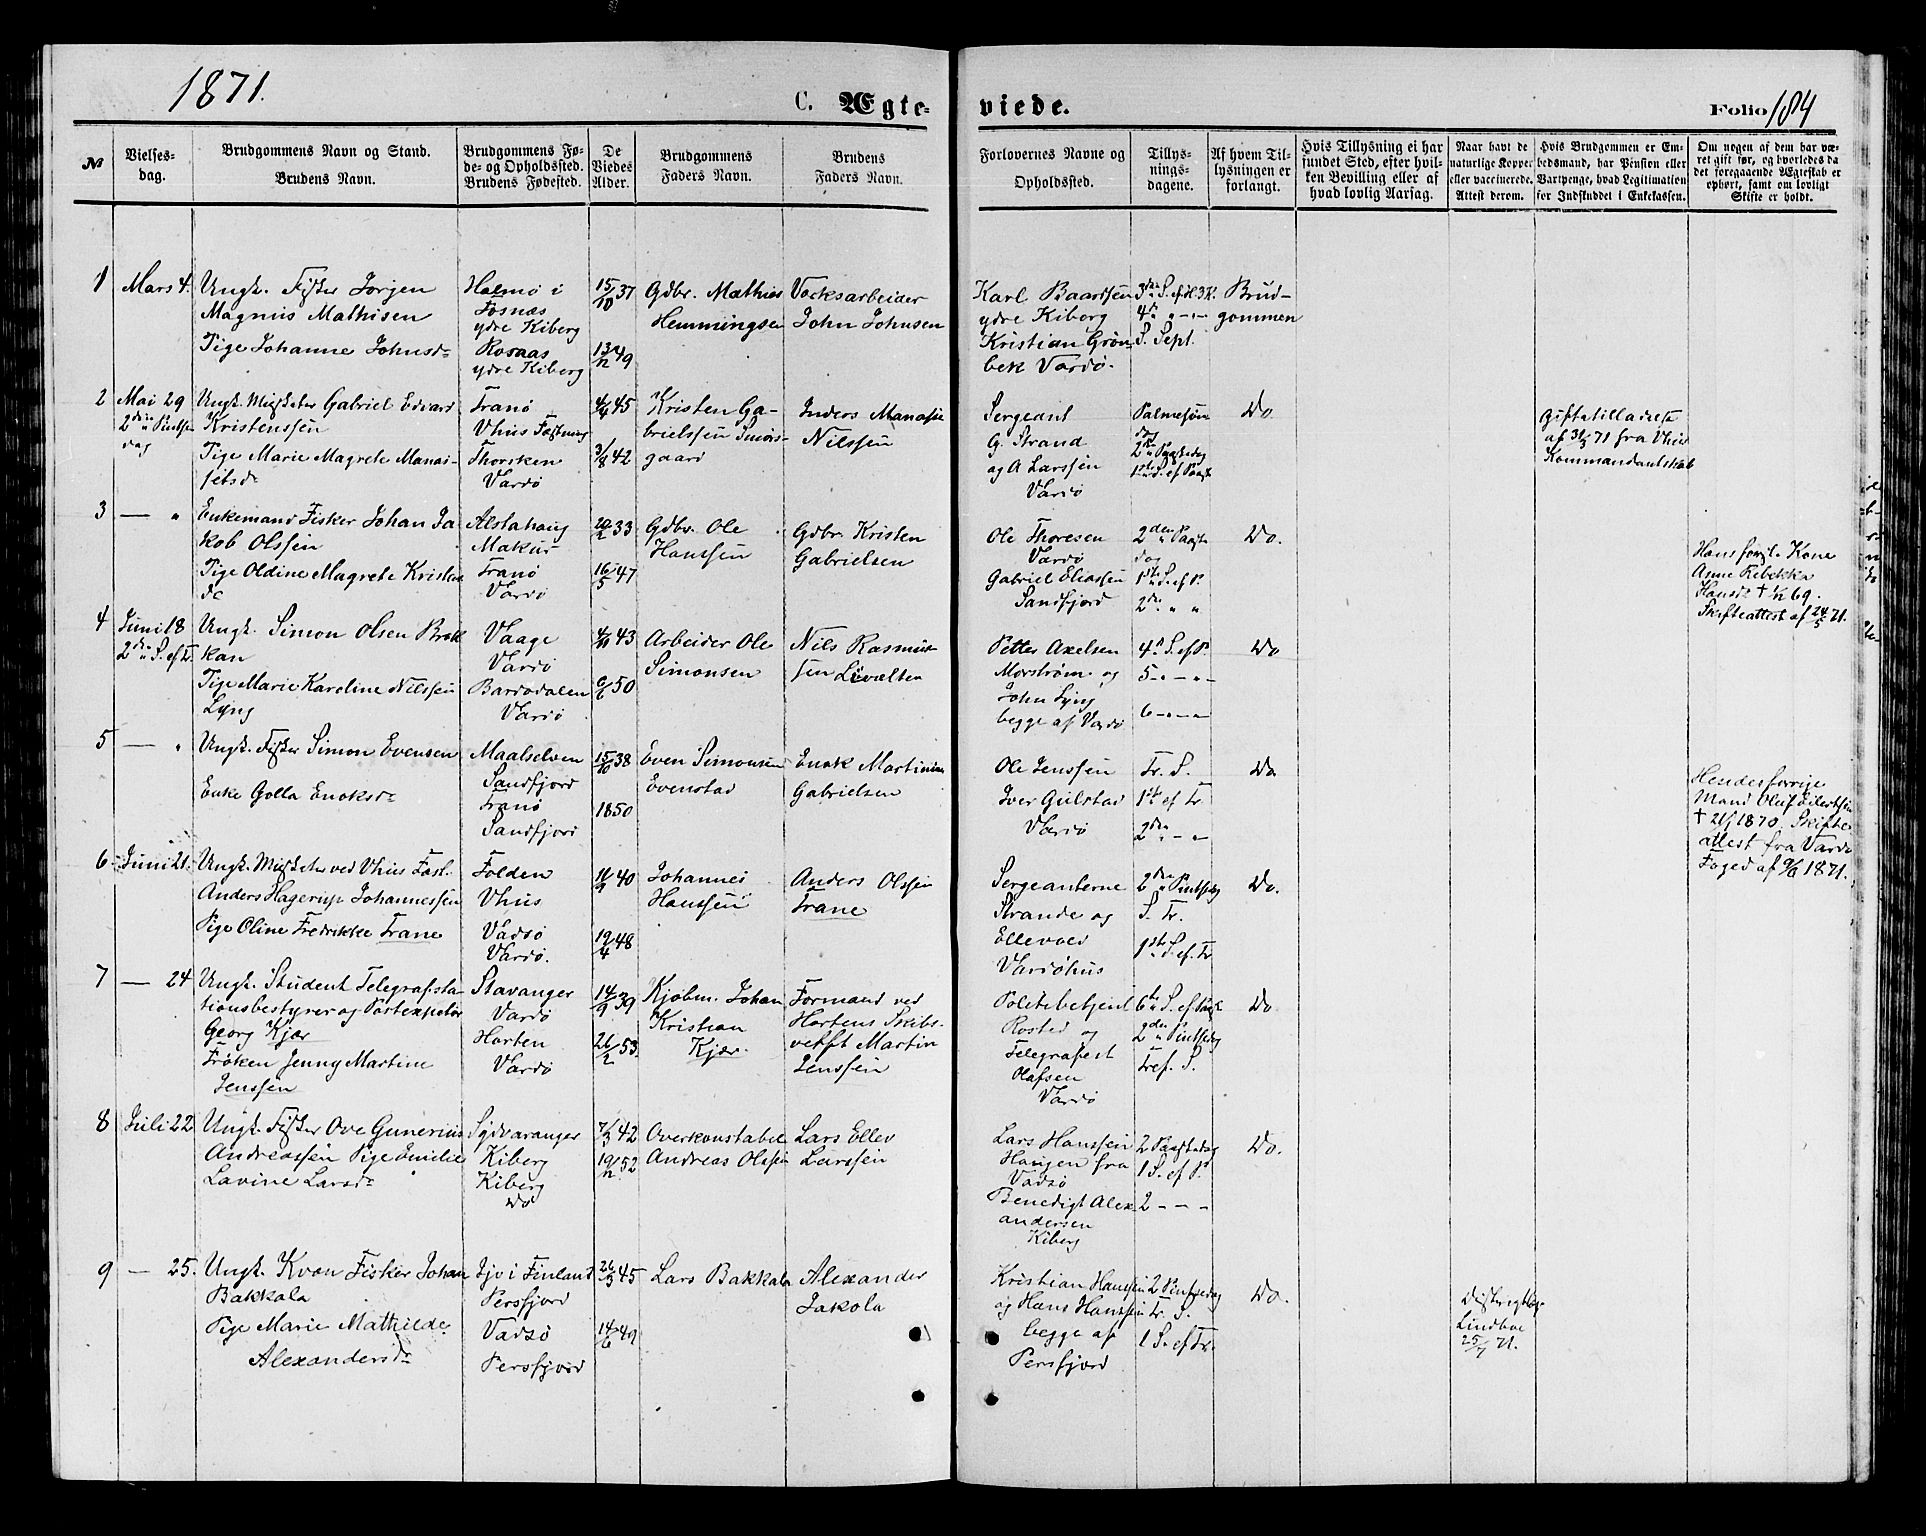 1871.
C. Ægte-
viede.
Folio 184
№
Vielses-
dag.
Brudgommens Navn og Stand.
Brudens Navn.
Brudgommens Fø-
de- og Opholdssted.
Brudens Fødested.
De
Viedes
Alder.
Brudgommens
Faders Navn.
Brudens
Faders Navn.
Forlovernes Navne og
Opholdssted.
Tillys-
nings-
dagene.
Af hvem Til-
lysningen er
forlangt.
Hvis Tillysning ei har
fundet Sted, efter hvil-
ken Bevilling eller af
hvad lovlig Aarsag.
Naar havt de
naturlige Kopper
eller vaccinerede.
Attest derom.
Hvis Brudgommen er Em-
bedsmand, har Pension eller
Vartpenge, hvad Legitimation
for Indskuddet i Enkekassen.
Om nogen af dem har væ-
ret gift før, og hvorledes da
det foregaaende Ægteskab er
ophørt, samt om lovligt
Skifte er holdt.
1
Mars 4.
Ungk. Fisker Jørgen
Magnus Mathisen
Pige Johanne Johnsd
Halmø i
Fosnæs
ydre Kiberg
Rosaas
ydre Kiberg
15/10 37
13/12 49
Gdbr. Mathias
Hemmingsen
John Johnsen
Karl Baardsen
ydre Kiberg
Kristian Grøn-
bek Vardø.
S. Sept.
Brud-
gommen
2
Mai 29
2den Pintse
dag
Ungk. Musketer Gabriel Edvard
Kristenssen
Pige Marie Magrete Manas-
sesd
Tranø
Vhus Fæstning
Thorsken
Vardø
4/4 45
3/8 42
Kristen Ga-
brielssen Smørs-
gaard
Anders Manasse
Nilssen
Sergeant
G. Strand
og A Larssen
Vardø
Palmesøn
dag
2den Paaskedag
1ste S. ef Paask
Do
Giftetilladelse
af 31/3 71 fra Vhus
Kommandantskab
3
— "
Enkemand Fisker Johan Ja
kob Olssen
Pige Oldine Magrete Kristen
dr
Alstahaug
Makur
Tranø
Vardø
20/2 33
16/5 47
Gdbr. Ole
Hanssen
Gdbr. Kristen
Gabrielsen
Ole Thoresen
Vardø
Gabriel Eliassen
Sandfjord
2den Paaske
dag
1ste S. ef P.
2den " "
Do.
Hans forrige Kone
Anne Rebekka
Hansd † 69.
Skifteattest af 24/5 71.
4
Juni 18
2den S. ef Tr.
Ungk. Simon Olsen Brek
kan
Pige Marie Karoline Nilssen
Lyng
Vaage
Vardø
Bardodalen
Vardø
4/11 43
9/6 50
Arbeider Ole
Simonsen
Nils Rasmus-
sen Livælten
Petter Axelsen
Morstrøm og
John Lyng
begge af Vardø
4de S. ef P.
5 - " -
6 - " -
Do
5
— "
Ungk. Fisker Simon Evensen
Enke Golla Enoksd
Maalselven
Sandfjord
Tranø
Sandfjord
15/10 38
1850
Even Simonsen
Evenstad
Enok Martinus
Gabrielsen
Ole Jenssen
Iver Gulstad
Vardø
Tr. S.
1ste ef Tr.
2den - "
Do
Hendes forrige
Mand Oluf Eilertsen
† 1870. Skifte
attest fra Vardø
Foged af 9/6 1871.
6
Juni 21.
Ungk. Musketer ved Vhus Fæst.
Anders Hagerup Johannessen
Pige Oline Fredrikke Trane
Folden
Vhus
Vadsø
Vardø.
11/9 40
19/4 48
Johannes
Hanssen
Anders Olssen
Trane
Sergeanterne
Strande og
Ellevold
Vardøhus
2den Pintsedag
S. Tr.
1ste S. ef. Tr
Do.
7
— 24
Ungk. Student Telegrafsta-
tionsbestyrer og Postexpeditør
Georg Kjær
Frøken Jenny Martine
Jenssen
Stavanger
Vardø
Horten
Vardø
14/9 39
26/2 53
Kjøbm. Johan
Kristian
Kjær.
Formand ved
Hortens Skibs-
verft Martin
Jenssen
Politibetjent
Rosted og
Telegrafest
Olafsen
Vardø
6te S. ef Paask
2den Pintsedag
Tref. S.
Do
8
Juli 22
Ungk. Fisker Ove Gunerius
Andreassen Pige Emilie
Lavine Larsd
Sydvaranger
Kiberg
Kiberg
Do
7/3 42
19/12 52
Overkonstabel
Andreas Olssen
Lars Ellev
Larssen
Lars Hanssen
Haugen fra
Vadsø
Benedigt Alex-
andersen
Kiberg
2 Paaskedag
1 S. ef P.
2 - - -
Do.
9
— 25.
Ungk. Kvæn Fisker Johan
Bakkala
Pige Marie Mathilde
Alexandersd
Ijo i Finland
Persfjord
Vadsø
Persfjord
26/3 45
14/6 49
Lars Bakkala
Alexander
Jakola
Kristian Hanssen
og Hans Hanssen
begge af
Persfjord
2 Pintsedag
Tr. S.
1 S. ef Tr.
Do.
Distriktslæge
Lindboe
25/7 71.